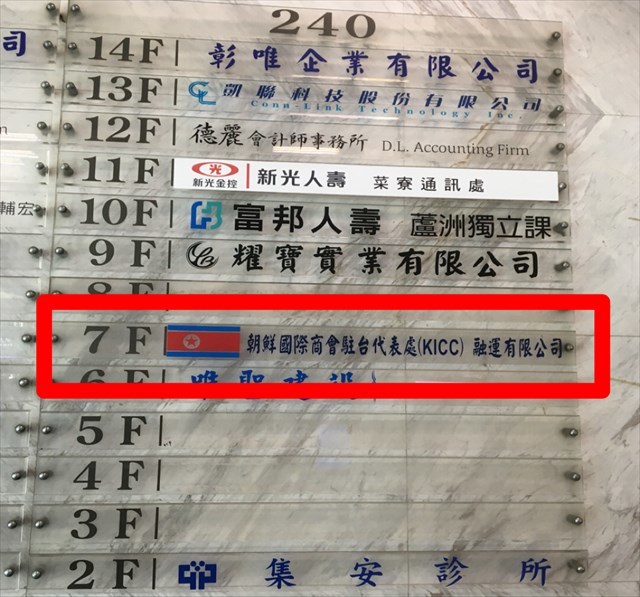 240
司
14F 彰唯企業有限公司
13F CL 凱聯科技股份有限公司
Conn-Link Technology Inc.
12F 德麗會計師事務所 D.L. Accounting Firm
11F 光 新光金控 新光人壽 菜寮通訊處
輔宏
10F 富邦人壽 蘆洲獨立課
9F 耀寶實業有限公司
8F
7F 朝鮮國際商會駐台代表處(KICC) 融運有限公司
6F 唯聖建設
5F
4F
3F
2F 集安診所